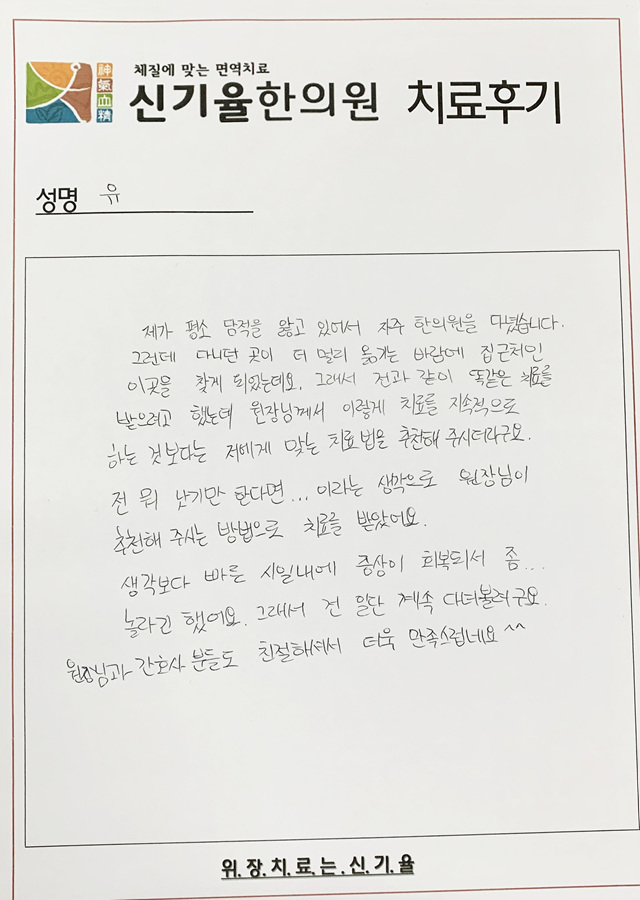 神氣血精
체질에 맞는 면역치료
신기율한의원 치료후기
성명 유
제가 평소 담적을 앓고 있어서 자주 한의원을 다녔습니다.
그런데 다니던 곳이 더 멀리 옮기는 바람에 집근처인
이곳을 찾게 되었는데요. 그래서 전과 같이 똑같은 치료를
받으려고 했는데 원장님께서 이렇게 치료를 지속적으로
하는 것보다는 저에게 맞는 치료법을 추천해 주시더라구요.
전 뭐 낫기만 한다면... 이라는 생각으로 원장님이
추천해 주시는 방법으로 치료를 받았어요.
생각보다 빠른 시일내에 증상이 회복되서 좀...
놀라긴 했어요. 그래서 전 일단 계속 다녀볼려구요.
원장님과 간호사 분들도 친절하셔서 더욱 만족스럽네요^^
위.장.치.료.는.신.기.율